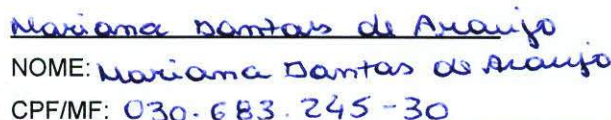 Mariana Dantas de Araujo
NOME: Mariana Dantas de Araujo
CPF/MF: 030.683.245-30